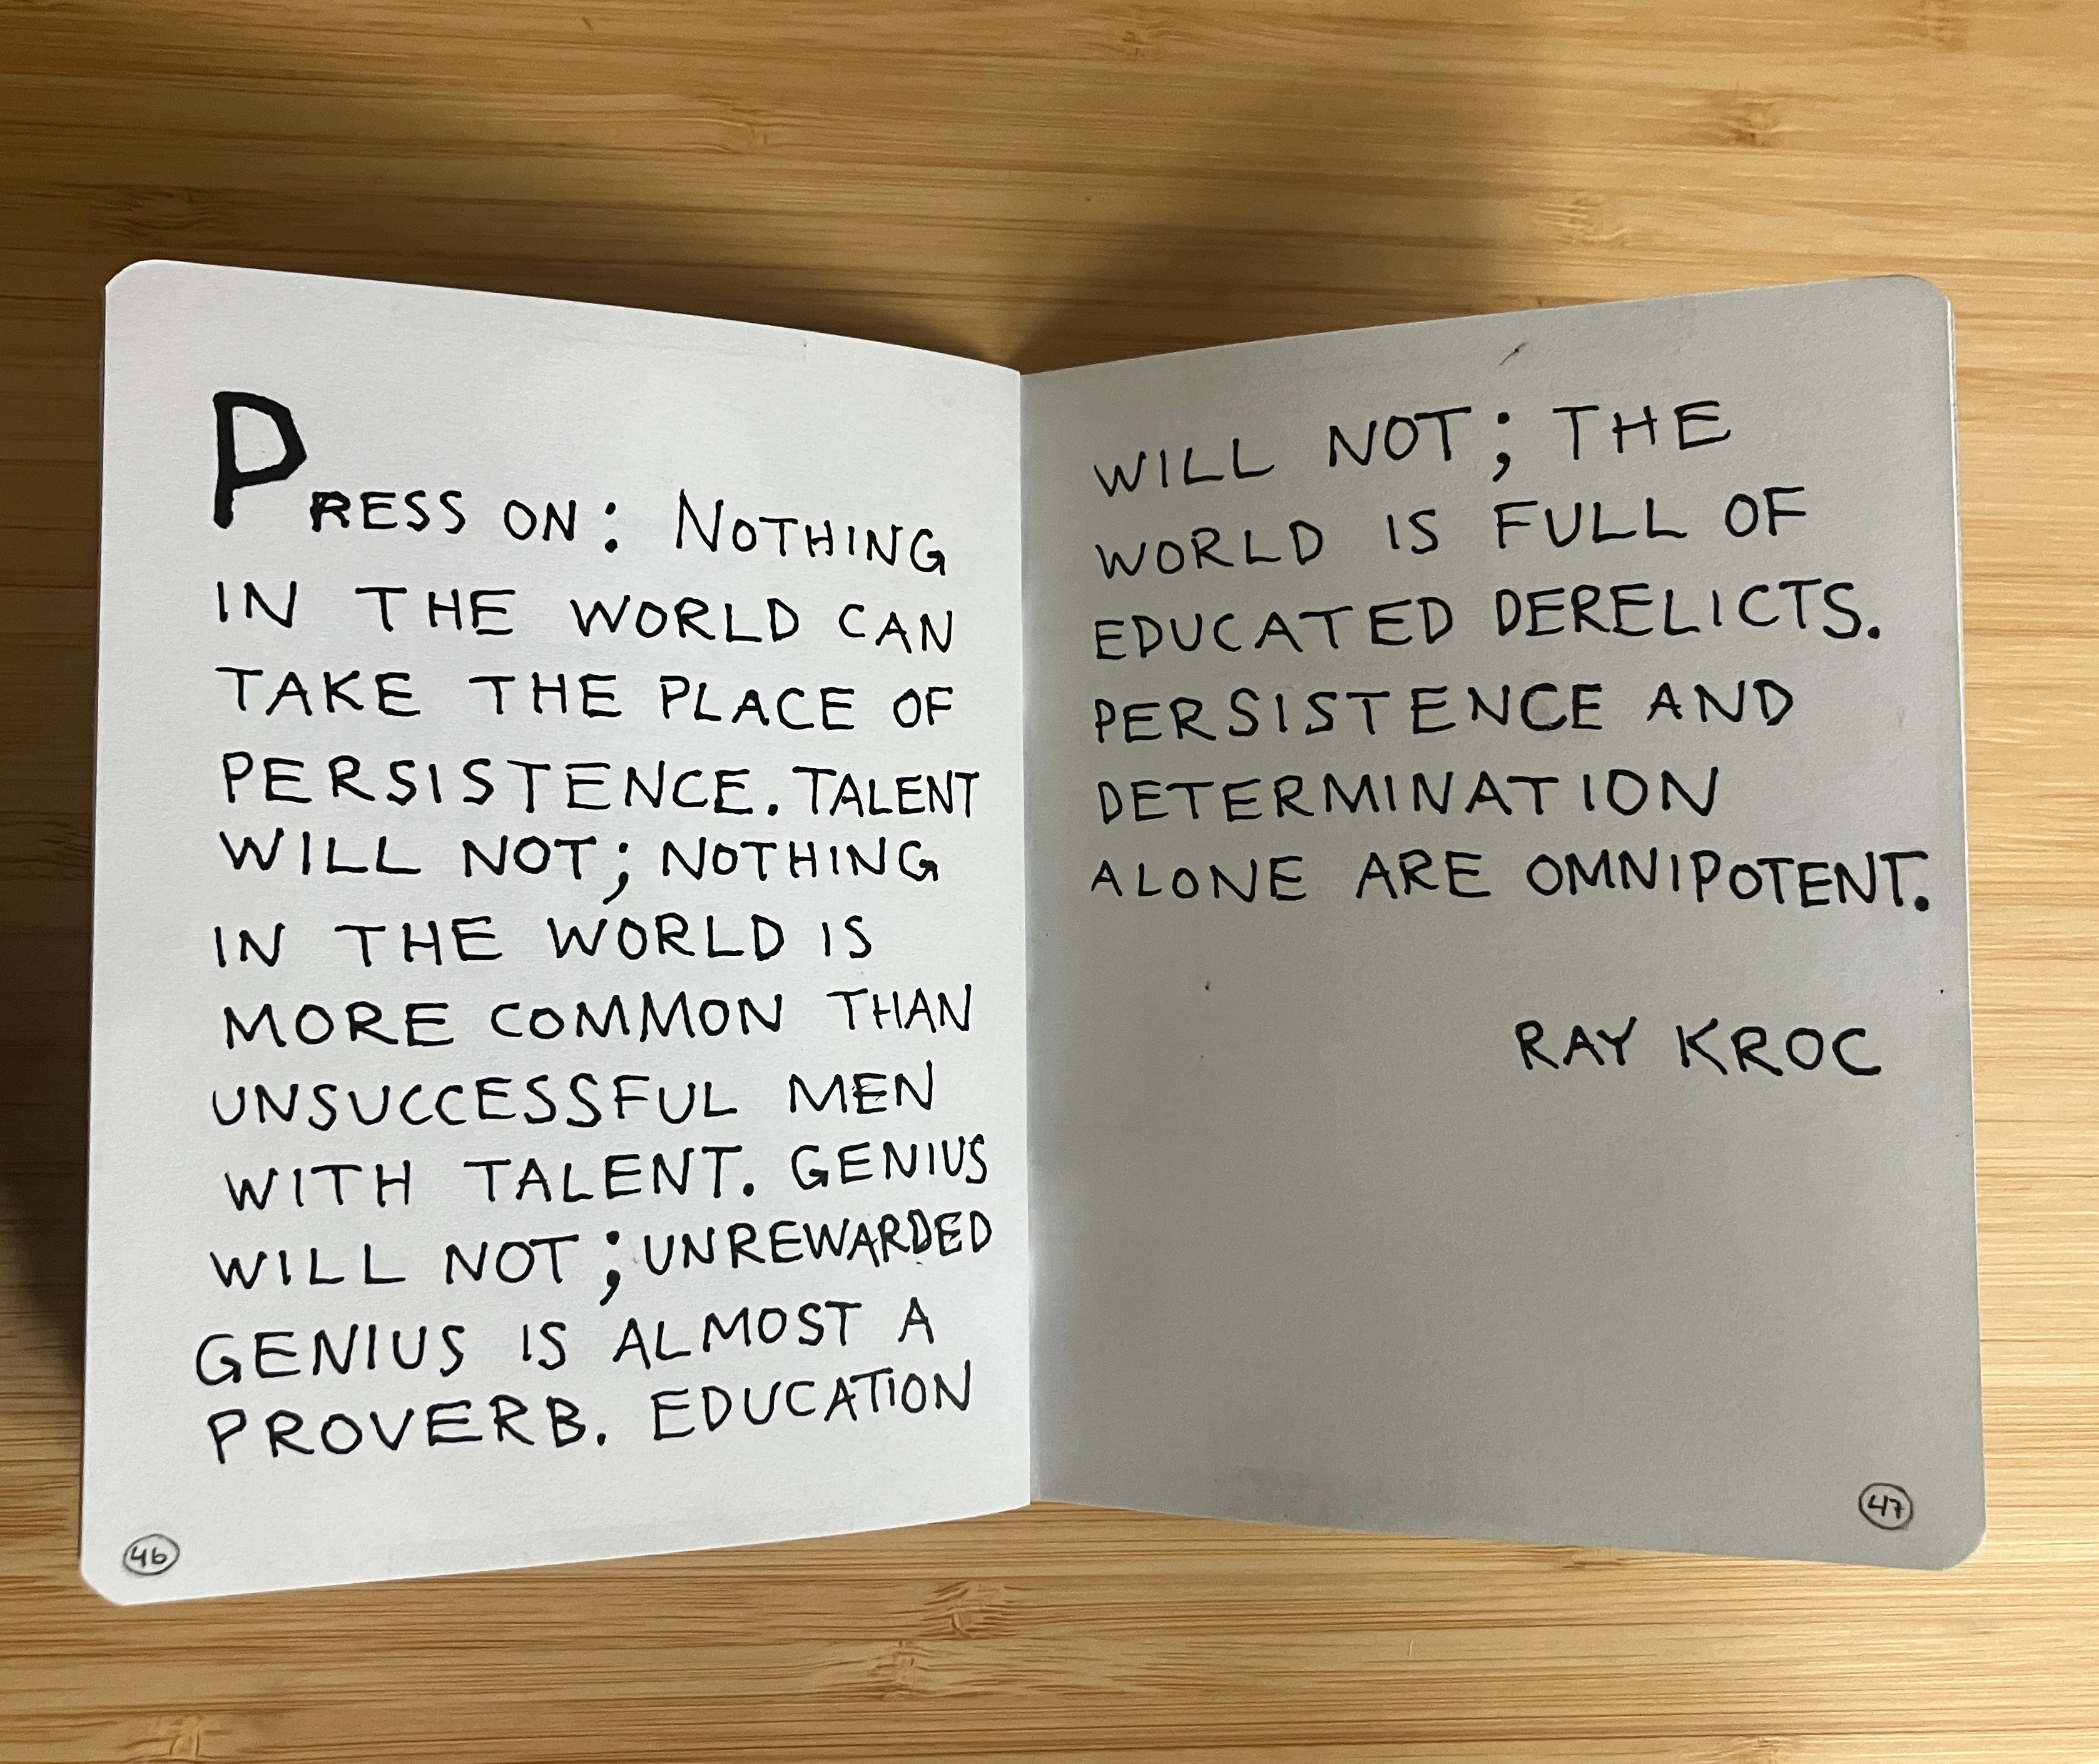 PRESS ON: NOTHING
IN THE WORLD CAN
TAKE THE PLACE OF
PERSISTENCE. TALENT
WILL NOT; NOTHING
IN THE WORLD IS
MORE COMMON THAN
UNSUCCESSFUL MEN
WITH TALENT. GENIUS
WILL NOT; UNREWARDED
GENIUS IS ALMOST A
PROVERB. EDUCATION
46
WILL NOT; THE
WORLD IS FULL OF
EDUCATED DERELICTS.
PERSISTENCE AND
DETERMINATION
ALONE ARE OMNIPOTENT.
RAY KROC
47